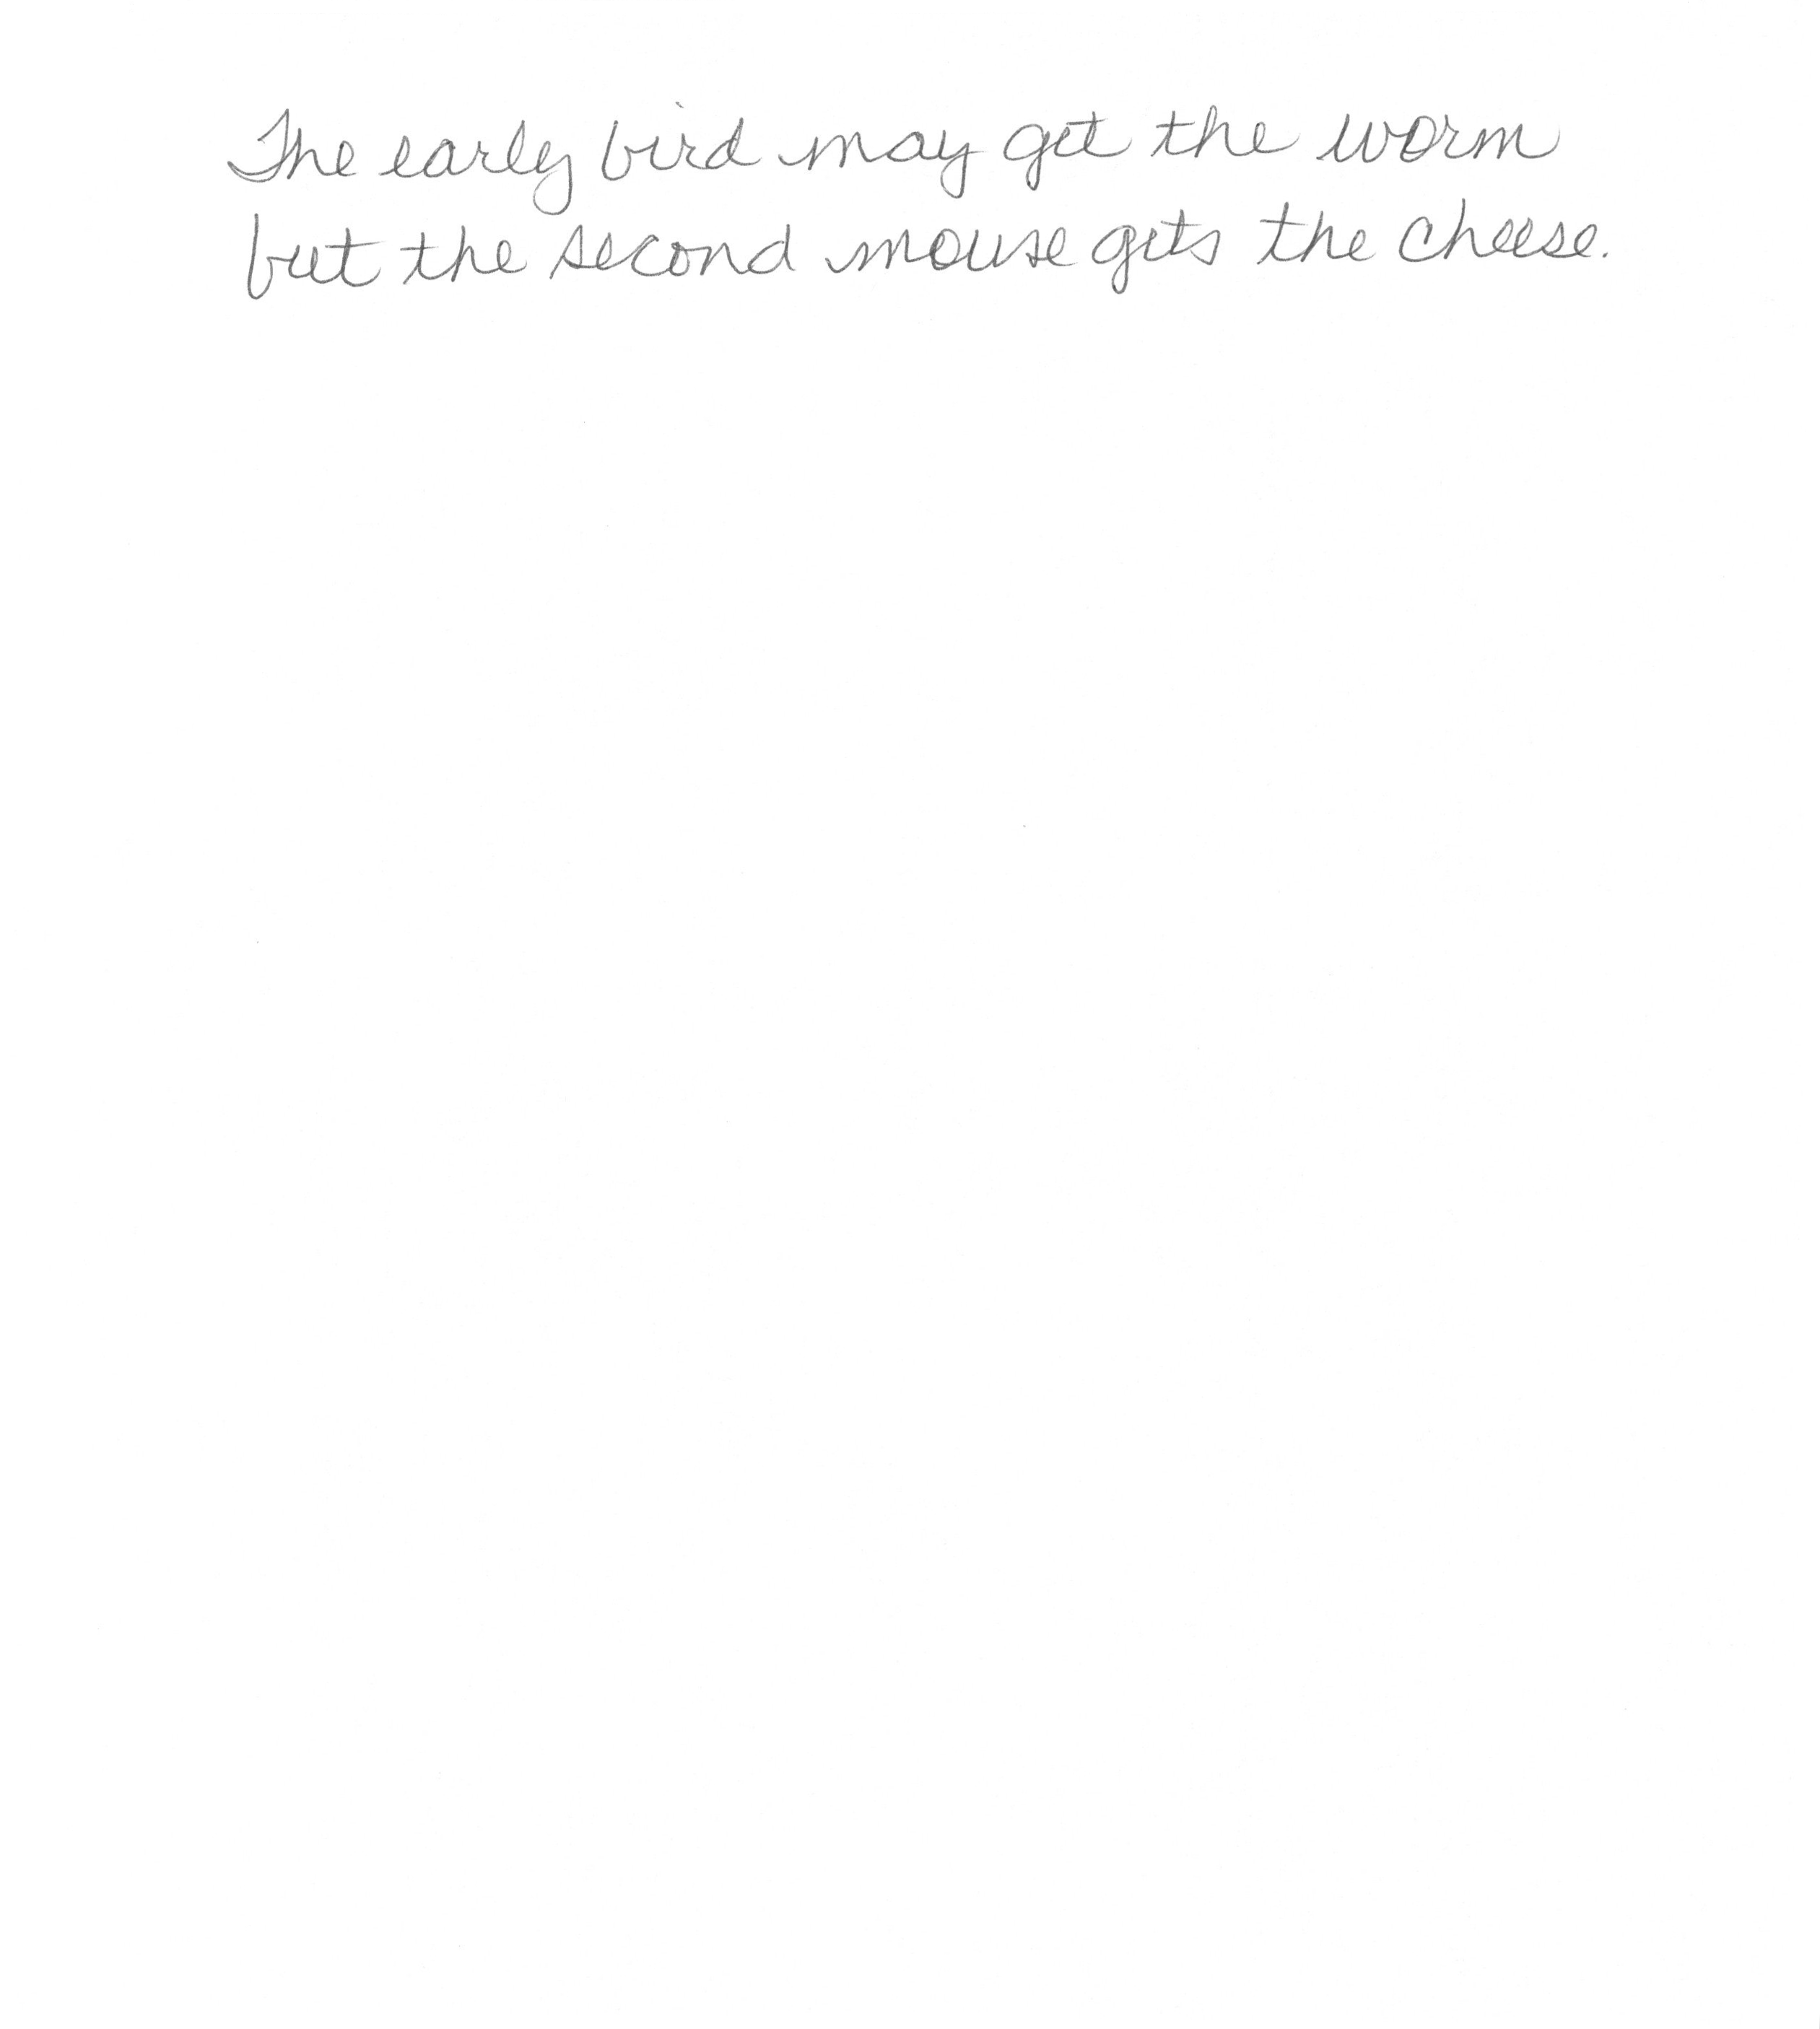 The early bird may get the worm
but the second mouse gets the cheese.